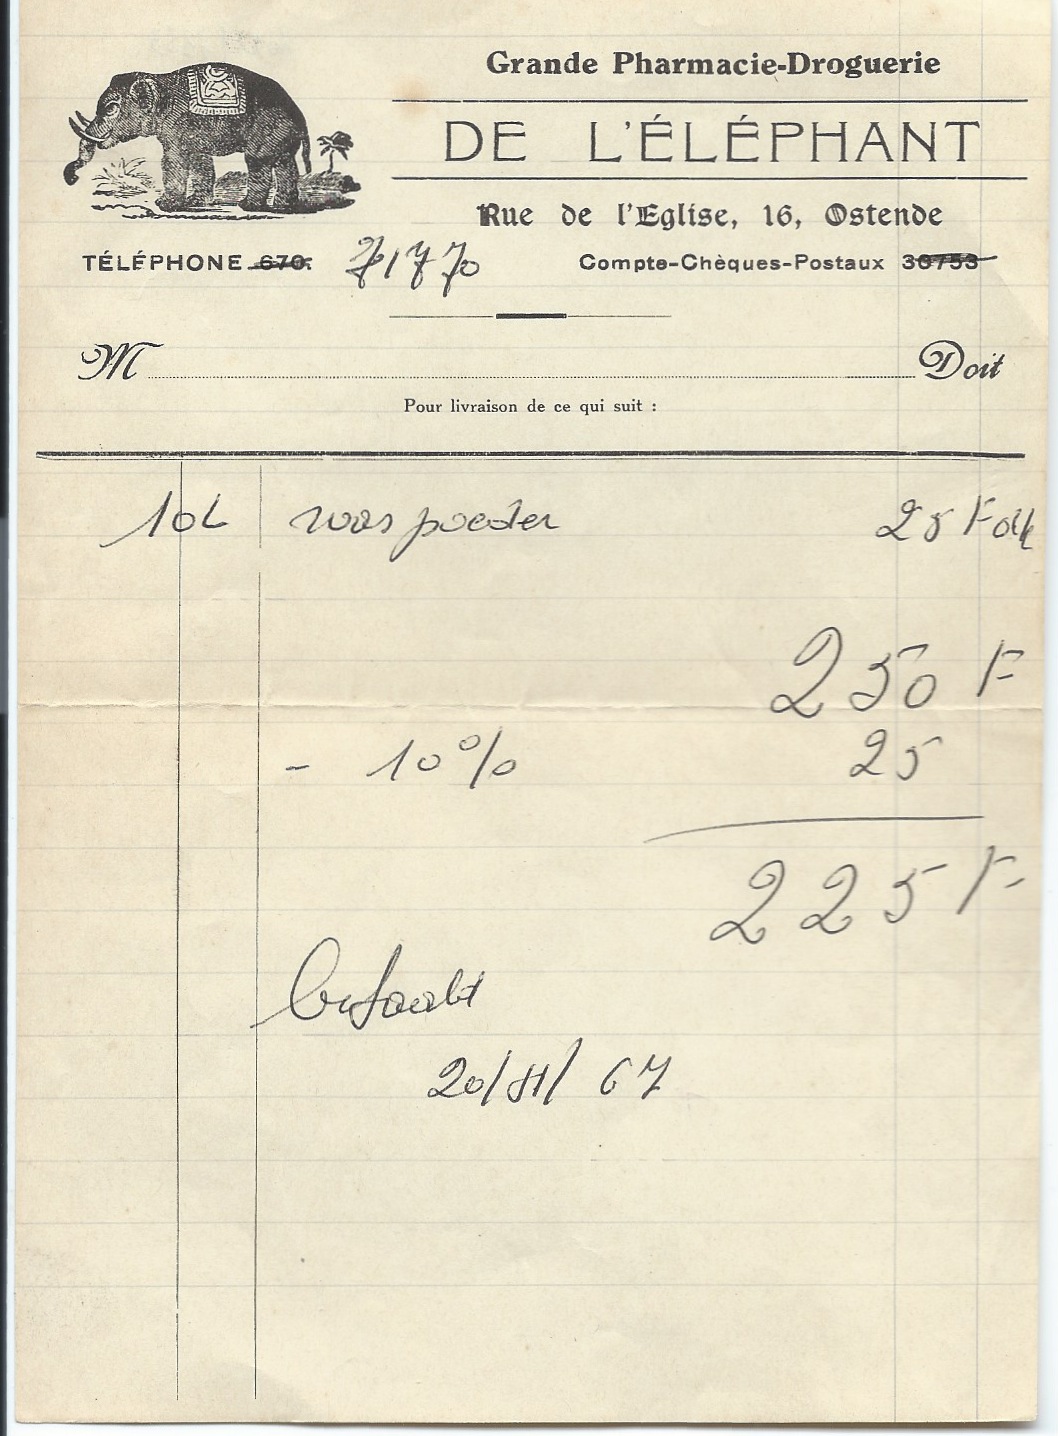 Grande Pharmacie-Droguerie
DE L'ÉLÉPHANT
Rue de l'Eglise, 16, Ostende
TÉLÉPHONE 670. 71770 Compte-Chèques-Postaux 30753
M Doit
Pour livraison de ce qui suit :
10L was poeder 25 F
250 F
- 10% 25
225 F
betaald
20/11/67